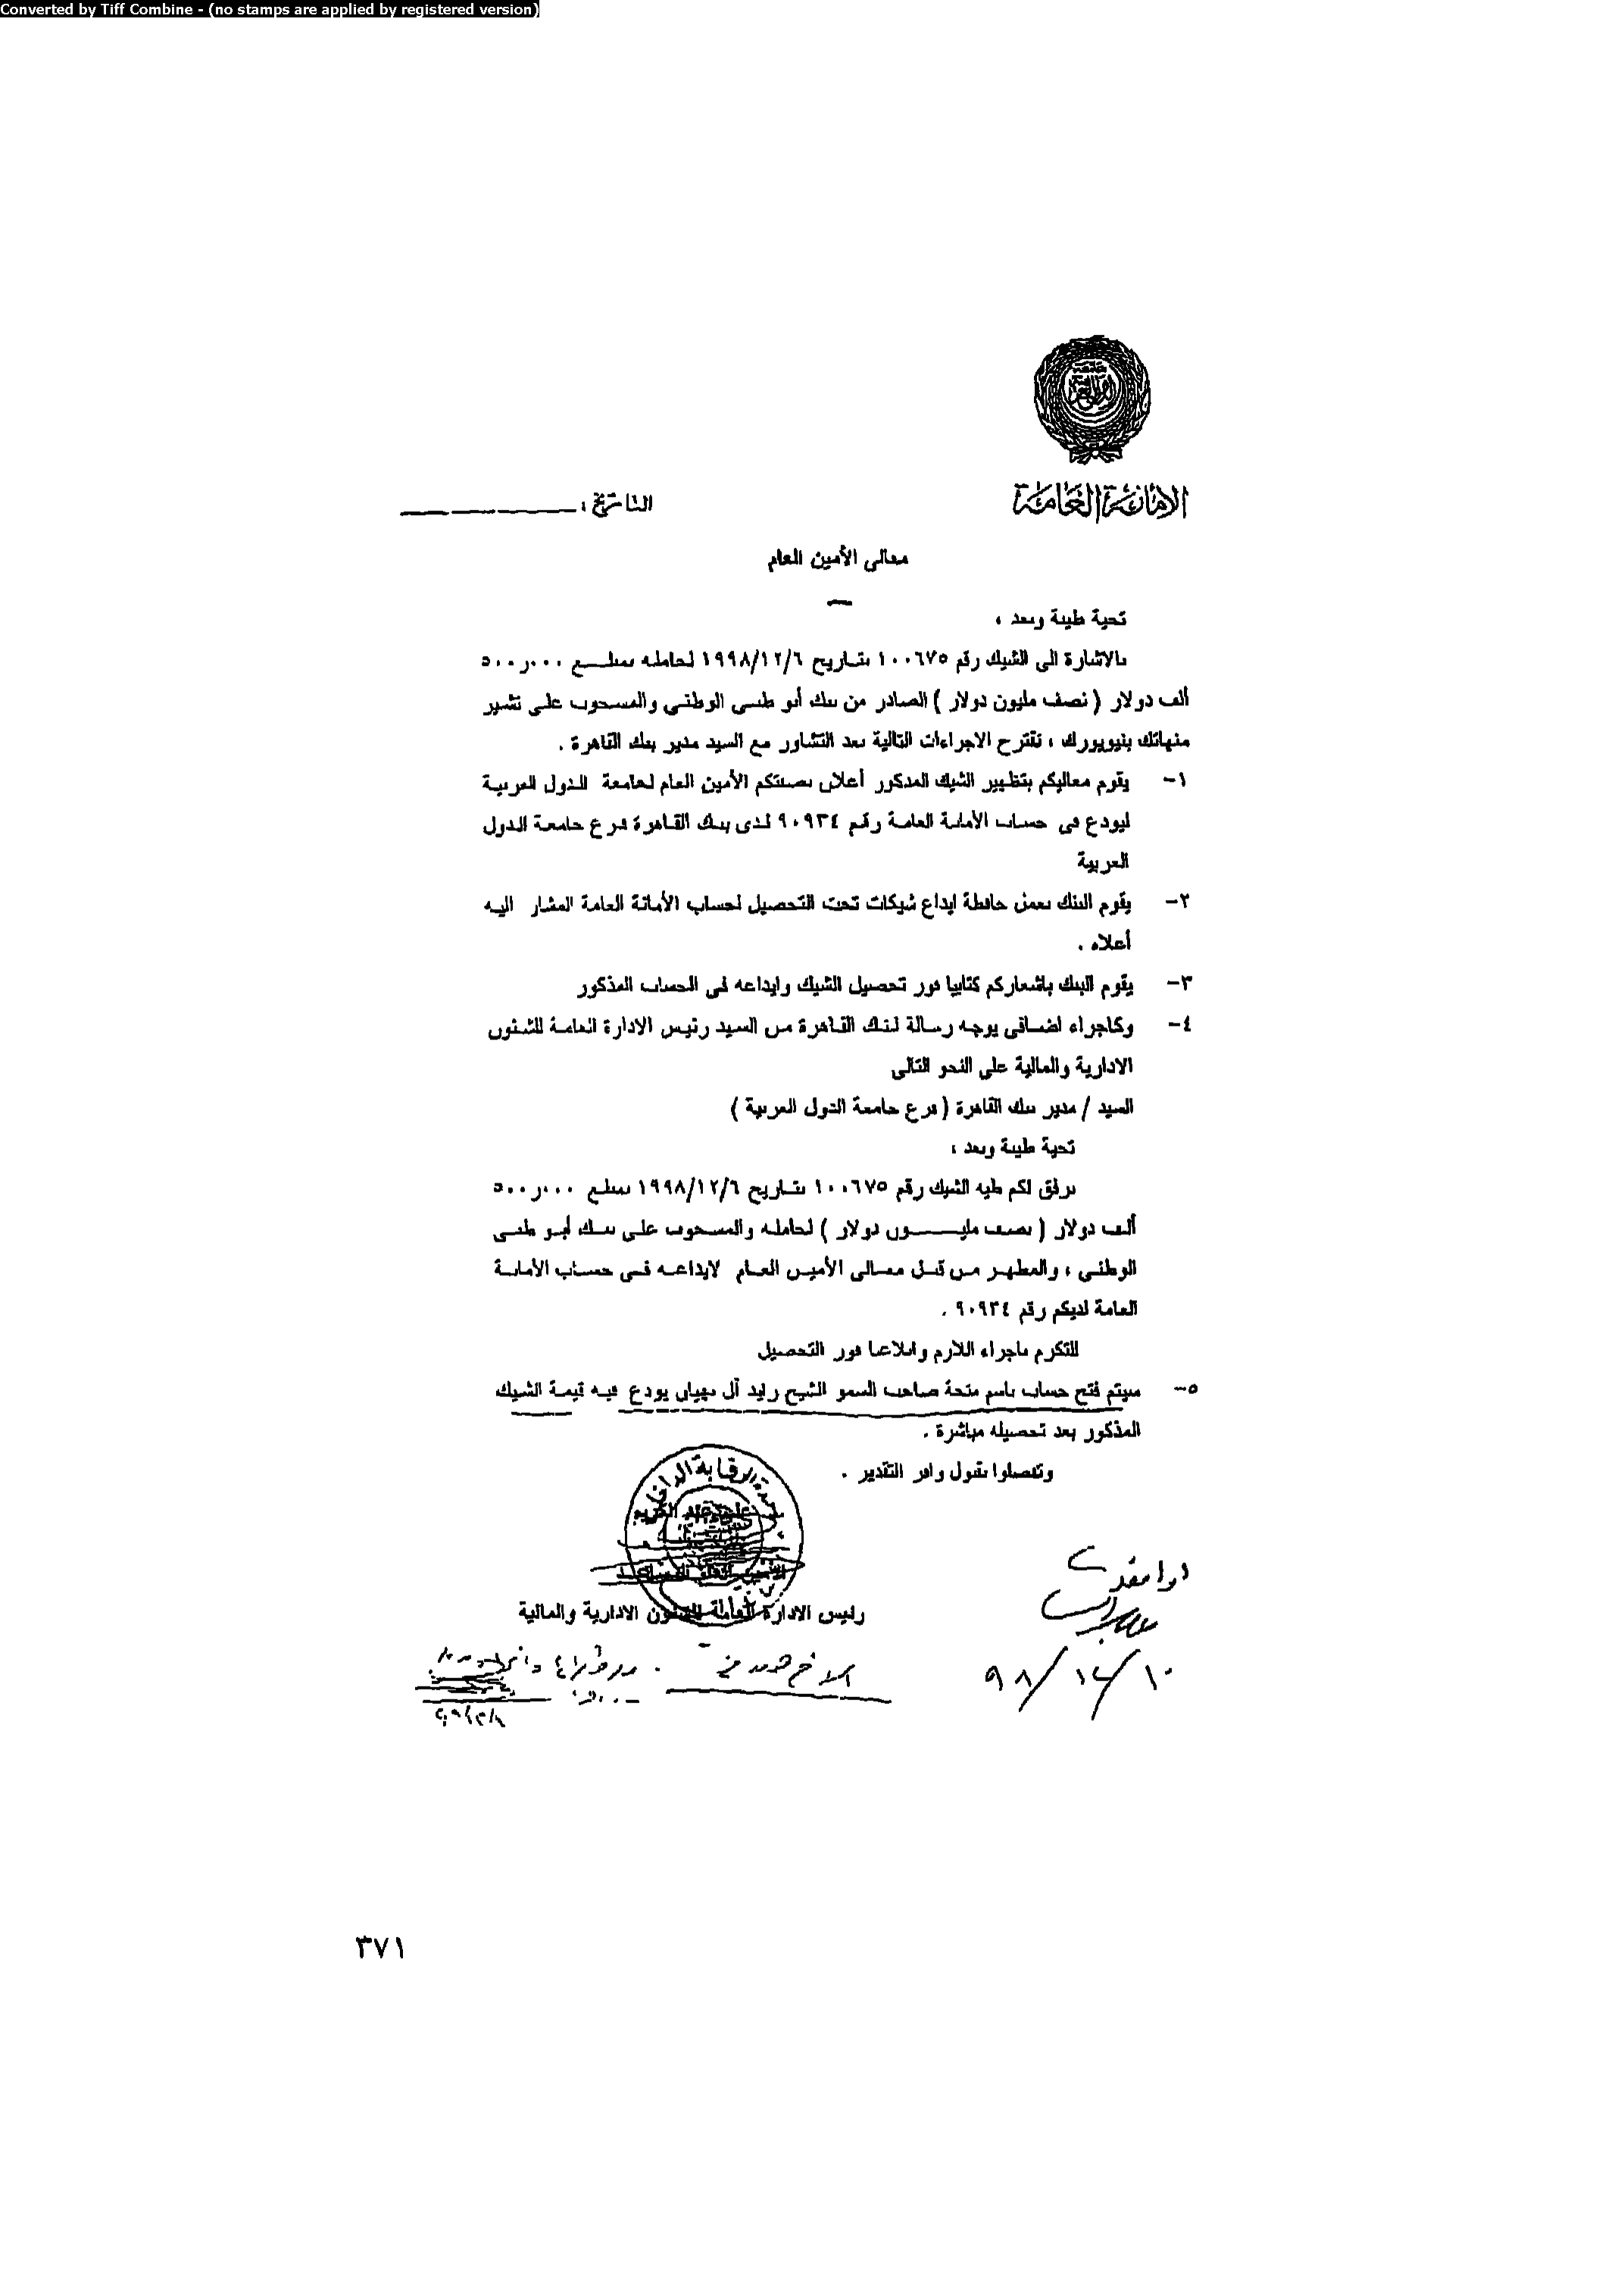 Converted by Tiff Combine - (no stamps are applied by registered version)
جامعة الدول العربية
الأمانة العامة
التاريخ :
معالى الأمين العام
تحية طيبة وبعد ،
بالاشارة الى الشيك رقم ١٠٠٦٧٥ بتاريح ١٩٩٨/١٢/٦ لحامله بمبلــع ٥٠٠ر٠٠٠
ألف دولار ( نصف مليون دولار ) الصادر من بنك أبو ظبــى الوطنى والمسحوب علـى تشير
منهاتك بنيويورك ، نقترح الاجراءات التالية بعد التشاور مع السيد مدير بنك القاهرة .
١- يقوم معاليكم بتظهير الشيك المذكور أعلاه بصفتكم الأمين العام لجامعة الدول العربية
ليودع فى حساب الأمانة العامة رقم ٩٠٩٣٤ لدى بنك القاهرة فرع جامعة الدول
العربية
٢- يقوم البنك بعمل حافظة ايداع شيكات تحت التحصيل لحساب الأمانة العامة المشار اليه
أعلاه .
٣- يقوم البنك باشعاركم كتابيا فور تحصيل الشيك وايداعه فى الحساب المذكور
٤- وكاجراء اضافى يوجه رسالة لبنك القاهرة من السيد رئيس الادارة العامة للشئون
الادارية والمالية على النحو التالى
السيد / مدير بنك القاهرة ( فرع جامعة الدول العربية )
تحية طيبة وبعد ،
نرفق لكم طيه الشيك رقم ١٠٠٦٧٥ بتـاريح ١٩٩٨/١٢/٦ بمبلع ٥٠٠ر٠٠٠
ألف دولار ( نصف مليـــون دولار ) لحامله والمسحوب على بنك أبـو ظبـى
الوطنى ، والمظهر من قبل معالى الأمين العام لايداعه فى حساب الأمانة
العامة لديكم رقم ٩٠٩٣٤ .
للتكرم باجراء اللازم وابلاغنا فور التحصيل
٥- سيتم فتح حساب باسم منحة صاحب السمو الشيخ زايد آل نهيان يودع فيه قيمة الشيك
المذكور بعد تحصيله مباشرة .
وتفضلوا بقبول وافر التقدير .
الرقابة الداخلية
رئيس الادارة العامة للشئون الادارية والمالية
٩٨/١٢/١٠
٣٧١